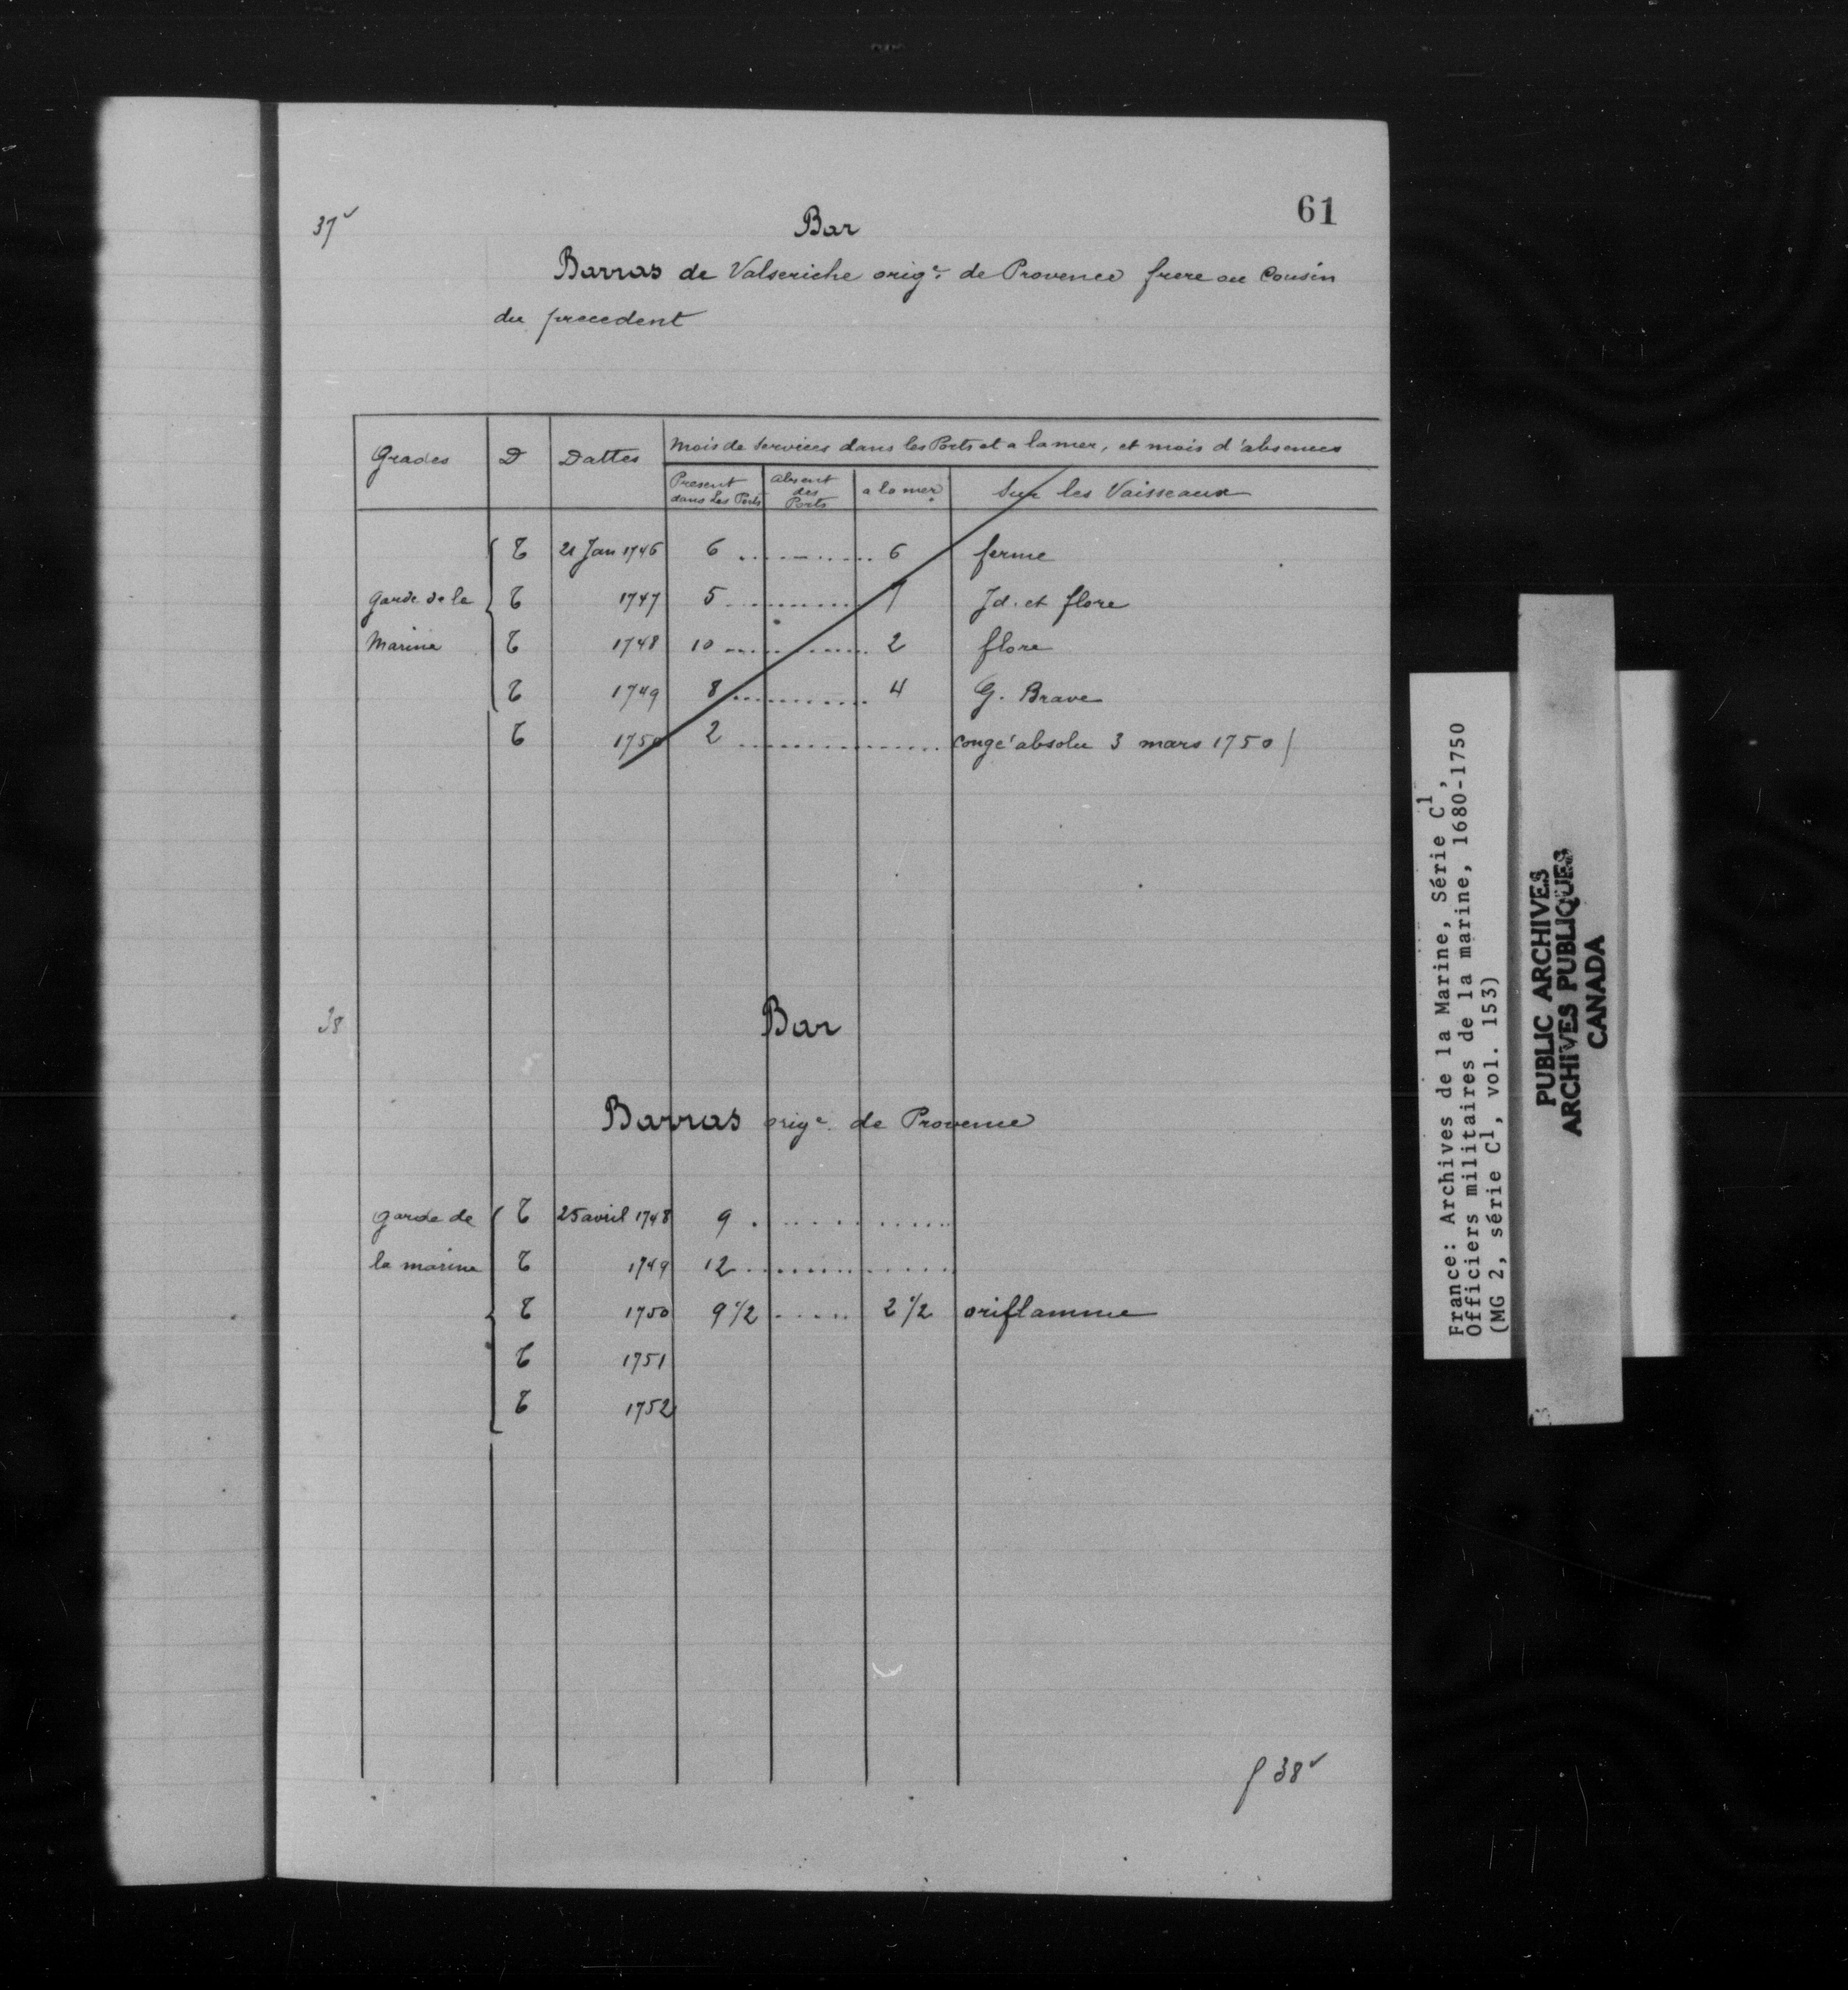 61
37v
Bar
Barras de Valseriche orig.e de Provence frere ou Cousin
du precedent
Grades D Dattes Mois de Services dans les Ports et a la mer, et mois d'absences
Present dans Les Ports Absent des Ports a la mer Sur les Vaisseaux
T 21 Jan 1746 6 ........... 6 ferme
garde de la T 1747 5 ........... 7 Id. et flore
Marine T 1748 10 ........... 2 flore
T 1749 8 ........... 4 G. Brave
T 1750 2 ............... congé absolu 3 mars 1750
38
Bar
Barras orig.e de Provence
garde de T 25 avril 1748 9 ...........
la marine T 1749 12 ...............
T 1750 9 1/2 ...... 2 1/2 oriflamme
T 1751
T 1752
f 38v
France: Archives de la Marine, Série C1,
Officiers militaires de la marine, 1680-1750
(MG 2, série C1, vol. 153)
PUBLIC ARCHIVES
ARCHIVES PUBLIQUES
CANADA